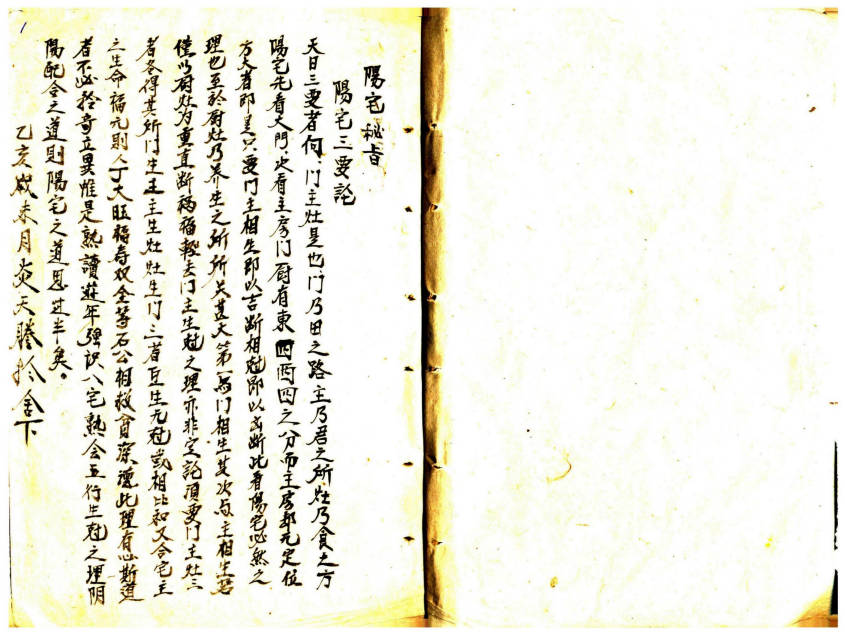 陽宅秘旨
陽宅三要訟
天曰三要者何門主灶是也門乃田之路主乃君之所灶乃食之方
陽宅先看大門次看主房門厨有東四西四之分而主房却无定位
方大者即是只要門主相生即以吉断相尅即以凶断此看陽宅必然之
理也至於厨灶乃养生之所所关甚大第一与門相生其次与主相生若
仅以厨灶为重直断祸福輕去門主生尅之理亦非定訟須要門主灶三
者各得其所門生主主生灶灶生門三者互生无尅或相比和又合宅主
之生命福元則人丁大旺福寿双全等石公相救貧深德此理有心斯道
者不必拎奇立異惟是熟讀遊年强识八宅熟会五行生尅之理阴
陽配合之道則陽宅之道思过半矣。
乙亥歲未月炎天謄於舍下
1